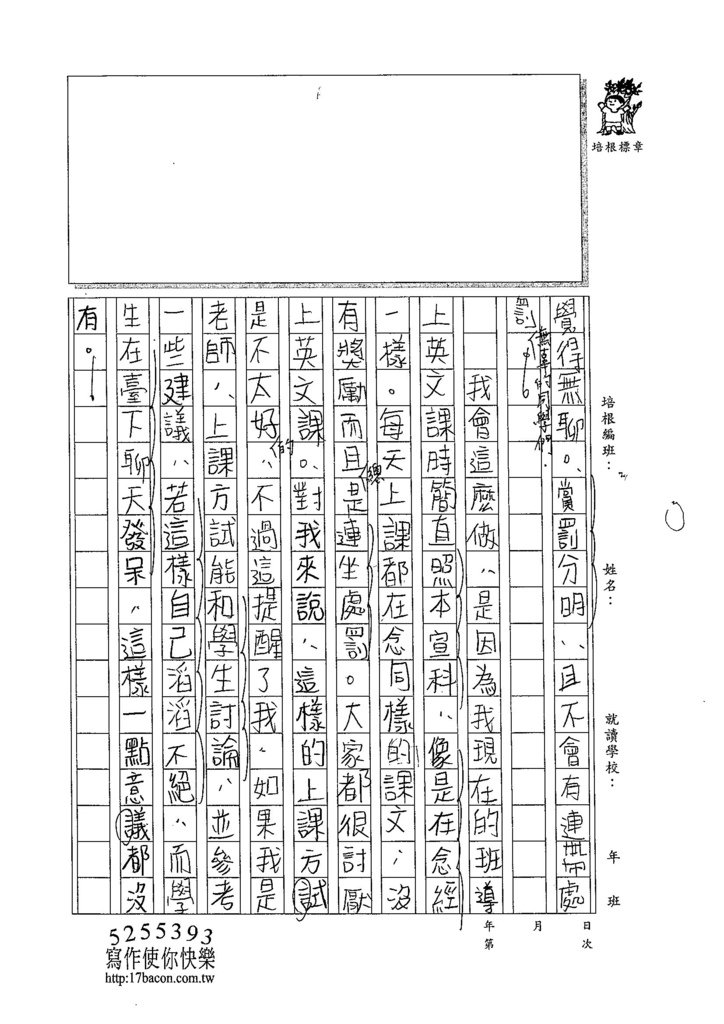 培根標章
培根編班：
姓名：
就讀學校：
年
班
覺得無聊。賞罰分明，且不會有連帶處
罰無辜的同學們。
我會這麼做，是因為我現在的班導
上英文課時簡直照本宣科，像是在念經
一樣。每天上課都在念同樣的課文，沒
有獎勵而且總是連坐處罰。大家都很討厭
上英文課。對我來說，這樣的上課方試
是不太好的，不過這提醒了我，如果我是
老師，上課方試能和學生討論，並參考
一些建議，若這樣自己滔滔不絕，而學
生在臺下聊天發呆，這樣一點意議都沒
有。
年
月
日
第
次
5255393
寫作使你快樂
http:17bacon.com.tw